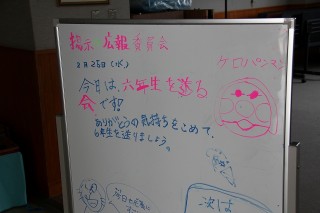 掲示 広報委員会
ケロパンマン
2月25日(水)
今日は、六年生を送る
会です!!
ありがとうの気持ちをこめて、
6年生を送りましょう。
次は